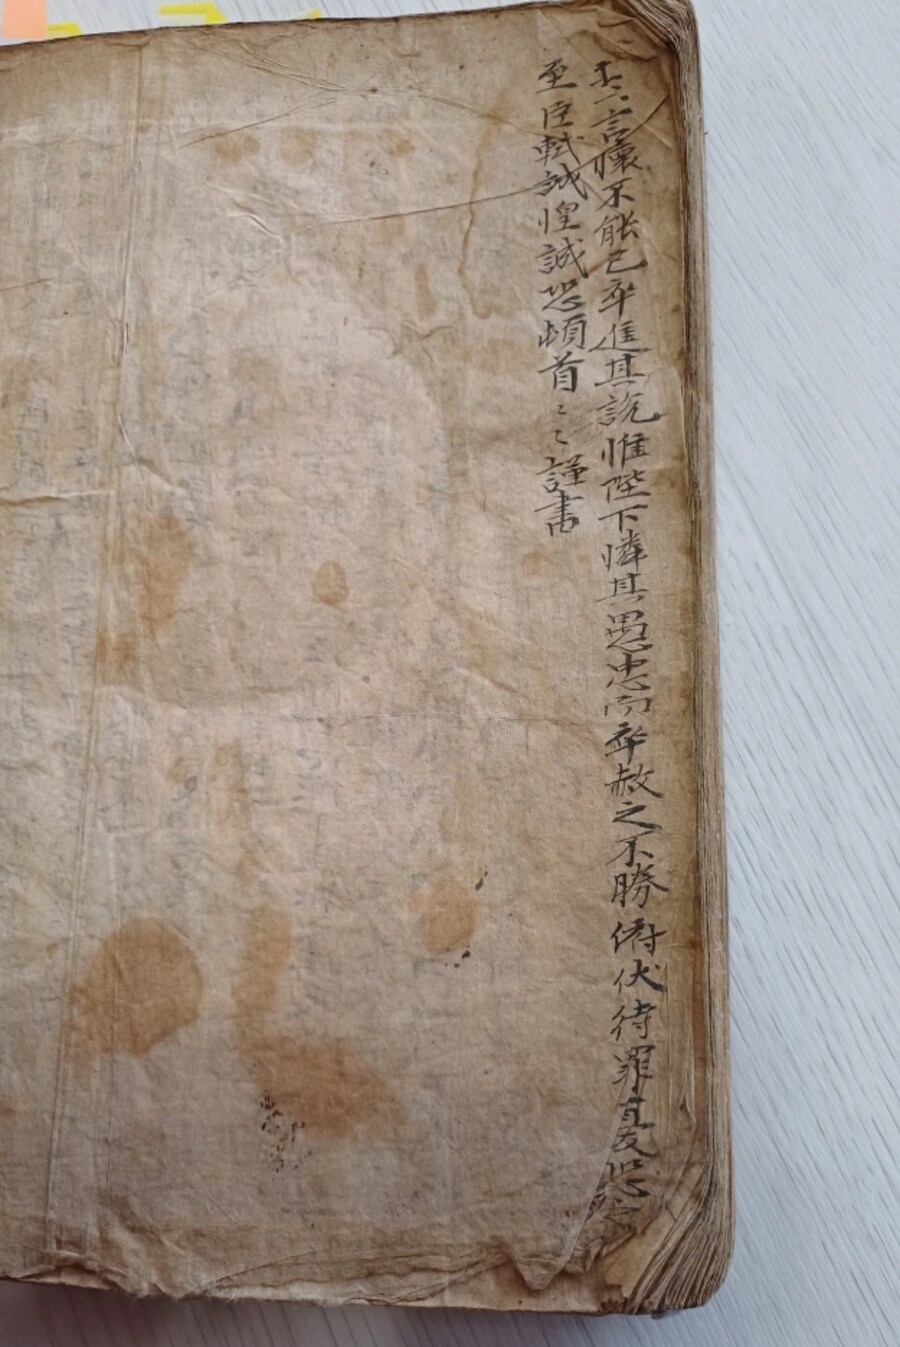 言懷不能已卒進其說惟陛下憐其愚忠而卒赦之不勝俯伏待罪憂恐之
至臣軾誠惶誠恐頓首〻〻謹書